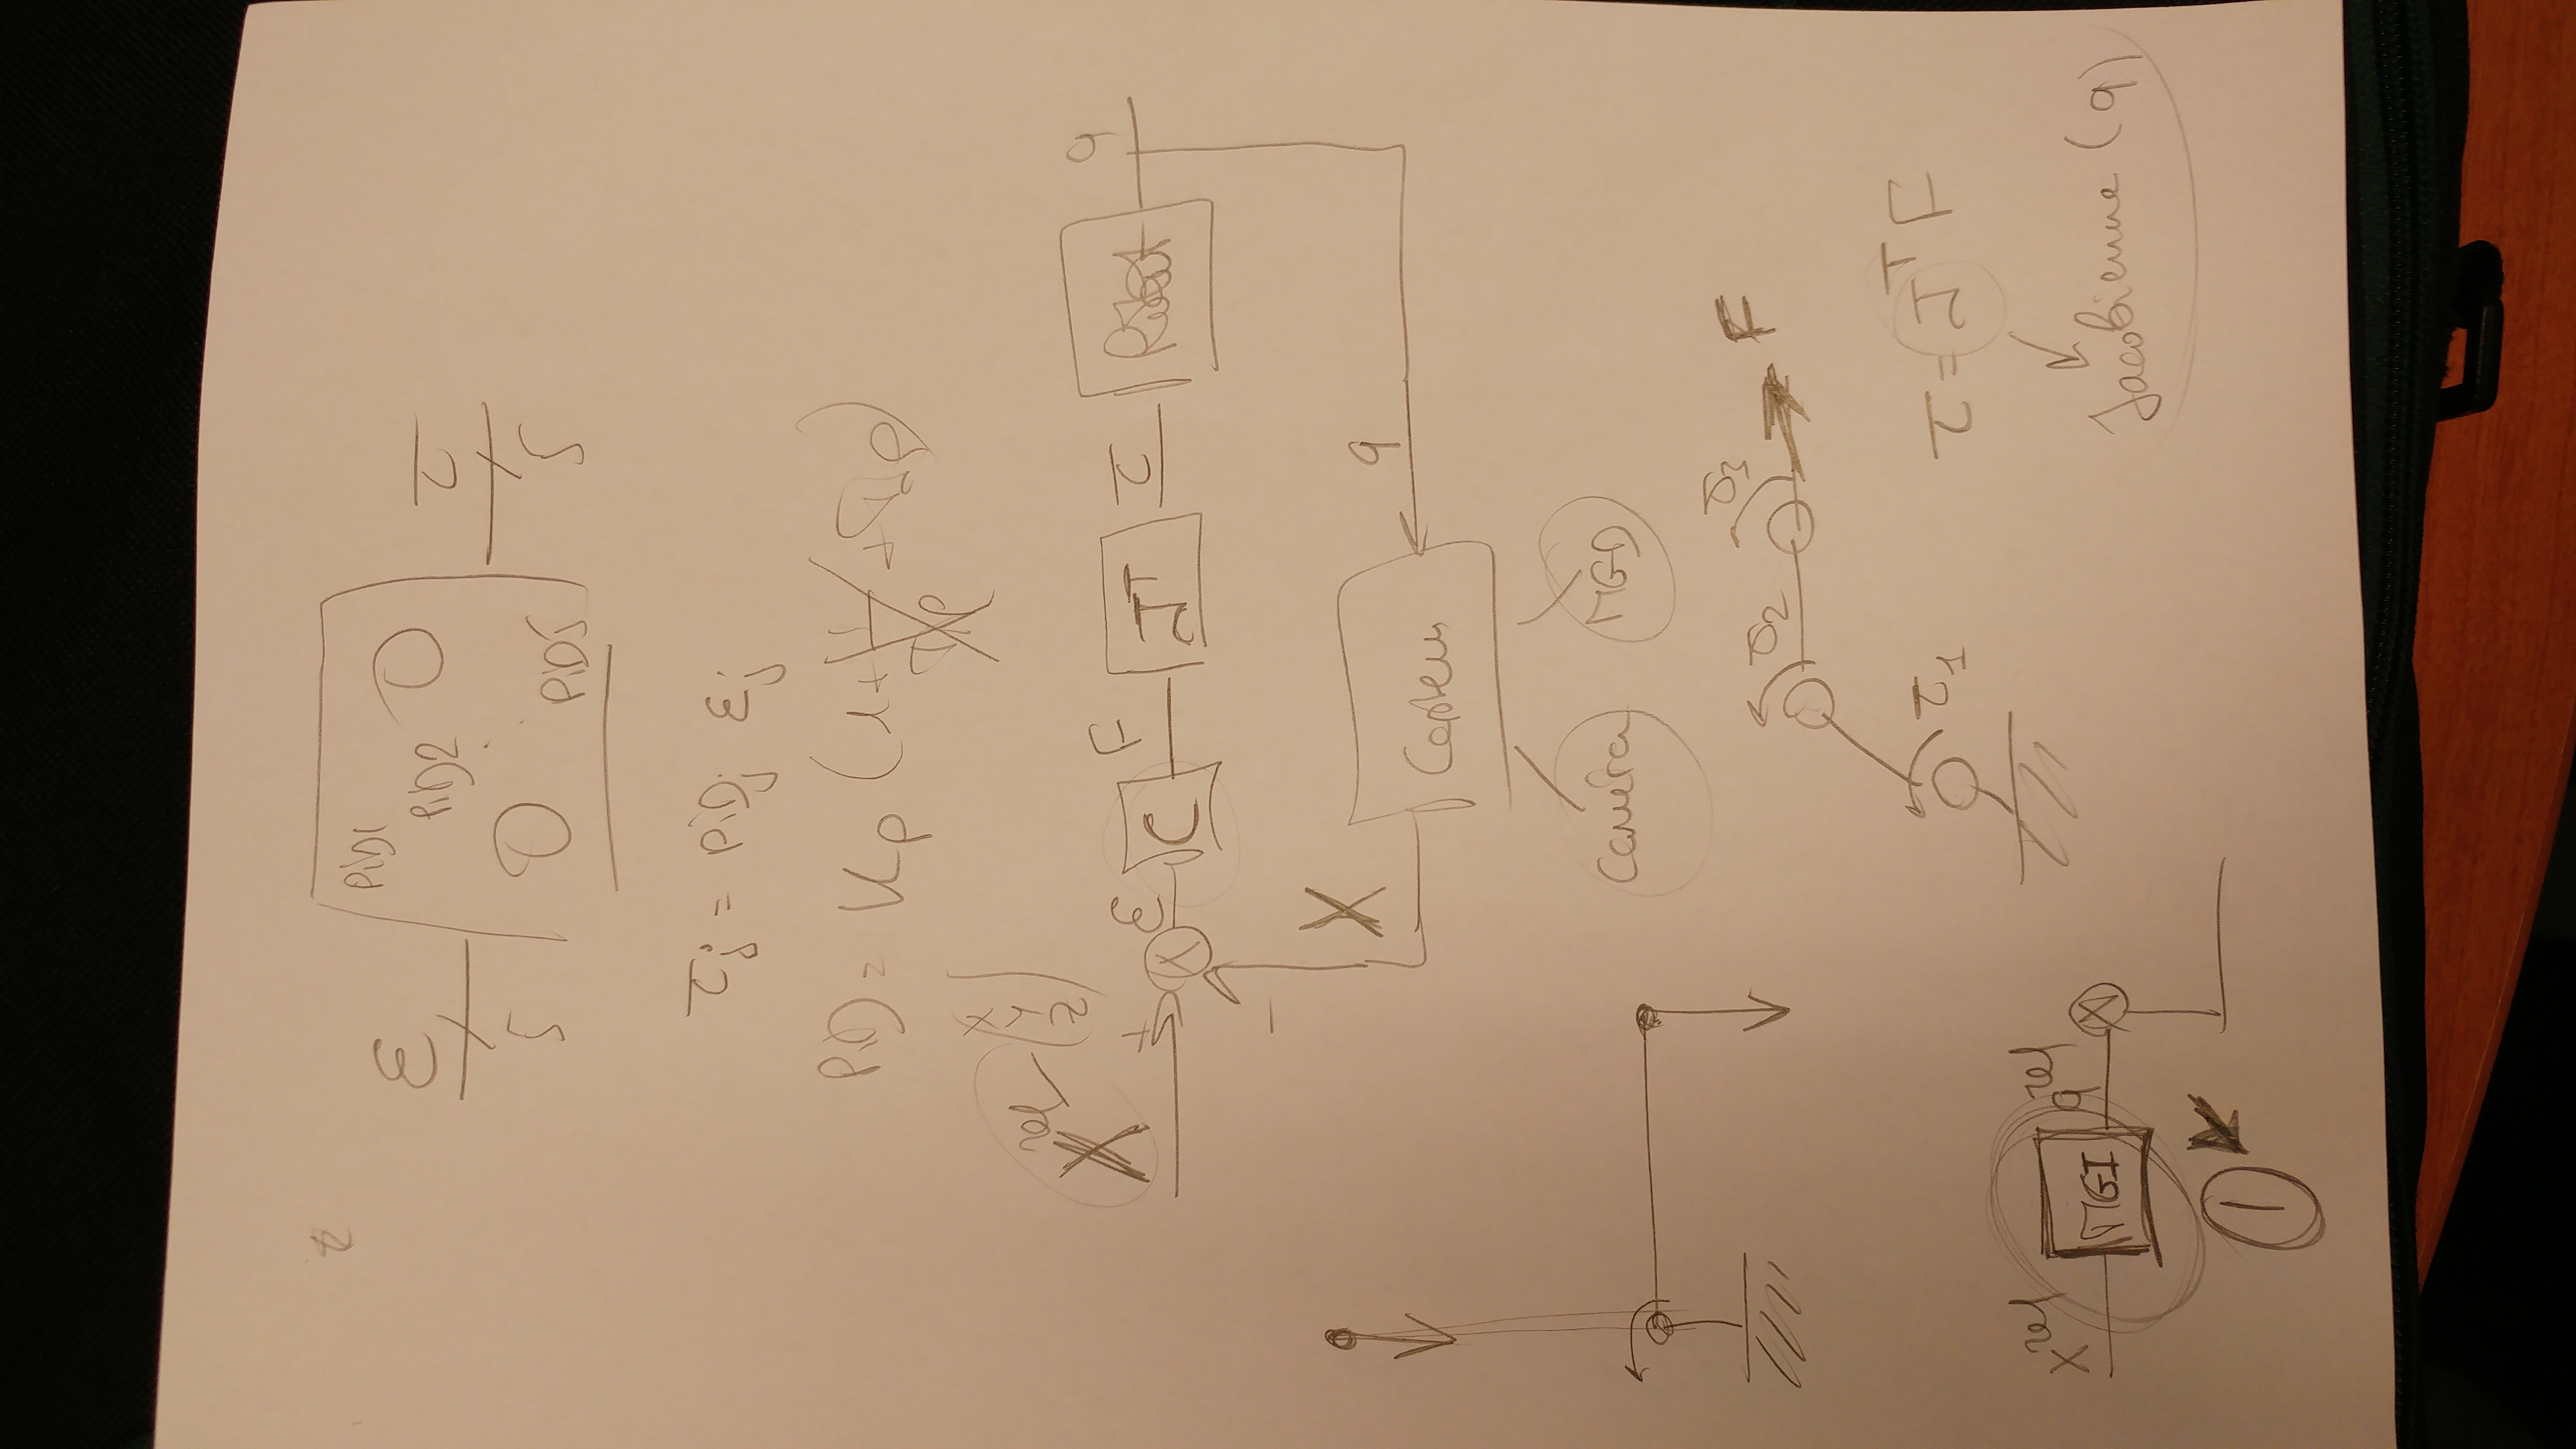 z
ε
5
PiD1
PiD2
O
O
PiD5
τ
5
τj = PiDj εj
PiD = Kp (1 + 1/Tip + Tdp)
X^ref (X Y Z)
+ ε C F J^T τ Robot q
-
X
Capteur
q
Caméra
MGD
τ1
τ2
τ3
F
τ = J^T F
Jacobienne (q)
X^ref MGI q^ref
1